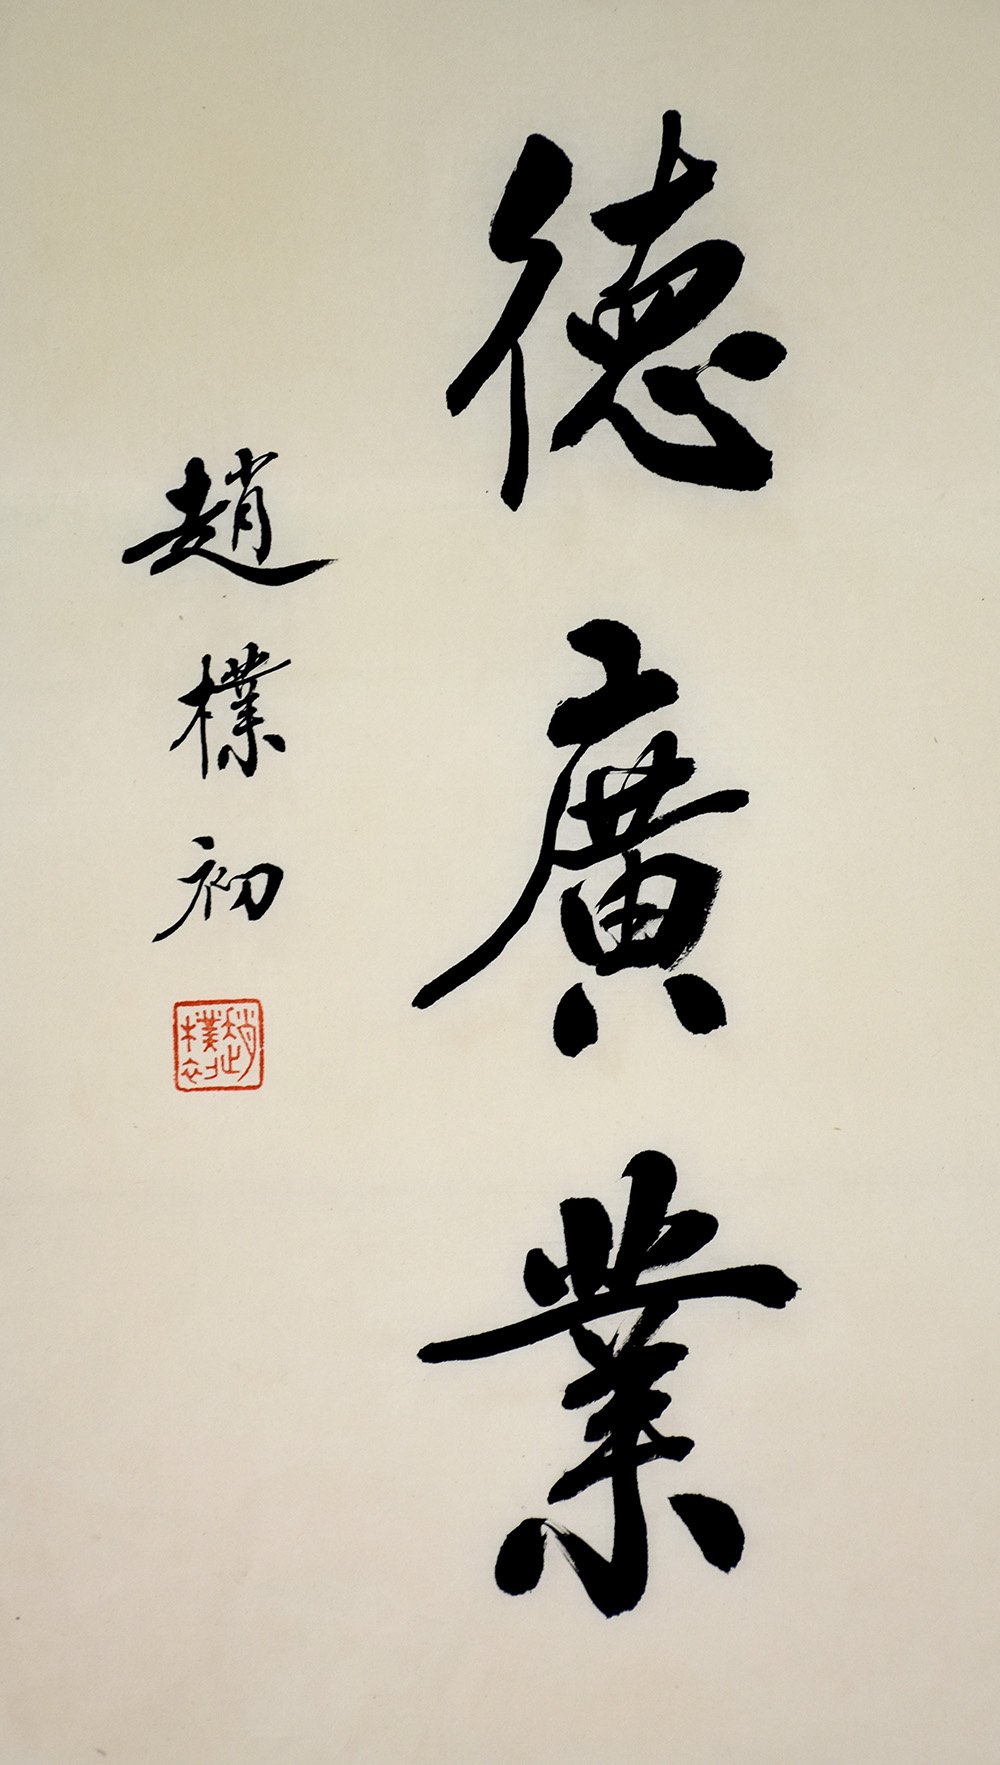 德廣業
趙樸初
趙樸初